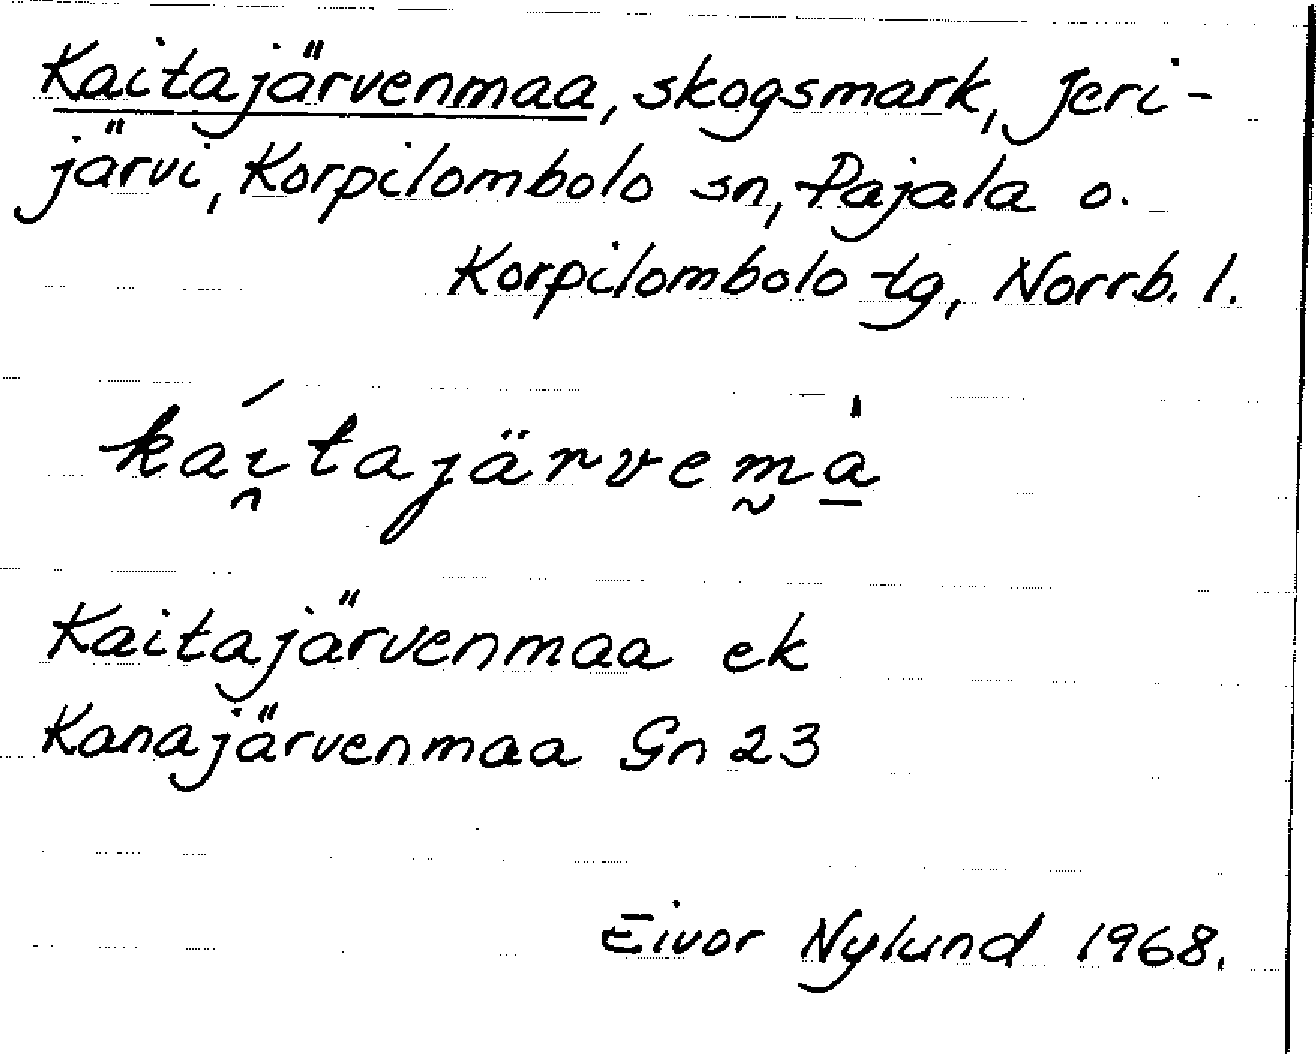 Kaitajärvenmaa, skogsmark, Jeri-
järvi, Korpilombolo sn, Pajala o.
Korpilombolo tg, Norrb. l.
káı̯tajärvem̰a̱̍
Kaitajärvenmaa ek
Kanajärvenmaa Gn 23
Eivor Nylund 1968.